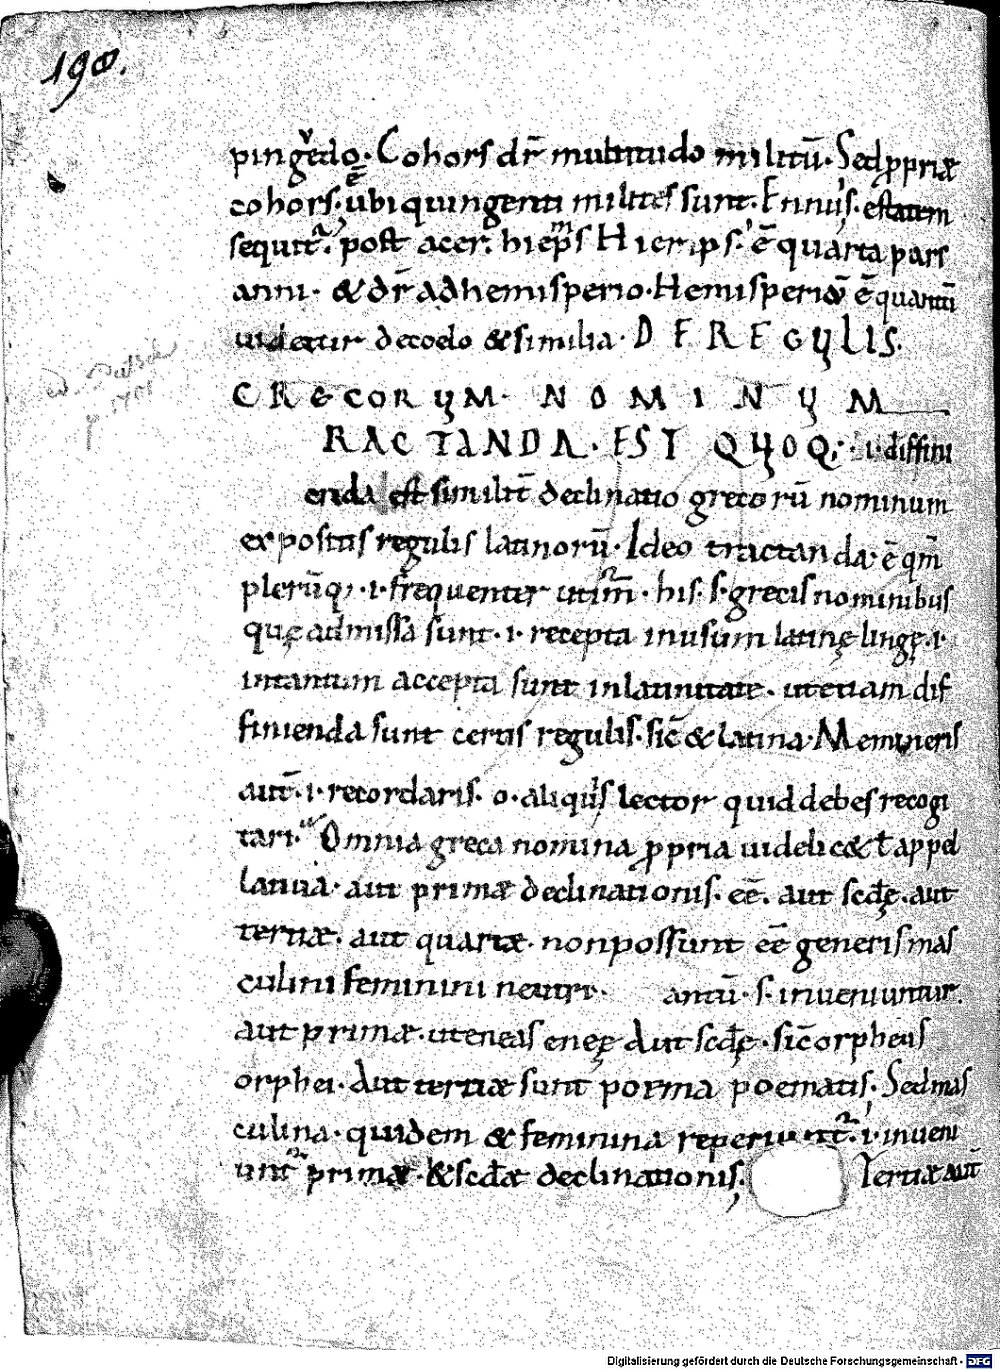 190.
pinguedo. Cohors dr̄ multitudo militū. Sed ꝓpriæ
cohors. ē ubi quingenti milites sunt. Ennius. ęstatem
sequit̄. post acer. hiēps Hiemps. ē quarta pars
anni. & dr̄ ad hemisperio. Hemisperiū ē quantū
uidetur de coelo & similia. DE REGULIS.
GRECORUM NOMINUM
RACTANDA. EST QUOQ; .i. diffini
enda est similit̄ declinatio grecorū nominum
expositis regulis latinorū. Ideo tractanda. ē qm̄
plerūq; .i. frequenter utim̄. his. s. grecis nominibus
quę admissa sunt. i. recepta in usum latinę lingę. i.
intantum accepta sunt in latinitate. ut etiam dif
finienda sunt certis regulis. sic̄ & latina. Memineris
aut̄. i. recordaris. o. aliquis lector quid debes recogi
tari. Omnia greca nomina ꝓpria uidelic& ł appel
latiua. aut primæ declinationis. eē. aut scdę. aut
tertiæ. aut quartæ. non possunt eē generis mas
culini feminini neutri. antū. s. inueniuntur.
aut primæ. ut eneas eneę Aut scdę. sic̄ orpheus
orphei. Aut tertiæ sunt poema poematis. Sed mas
culina. quidem & feminina reperiunt̄. i. inueni
unt̄ primæ & scdæ declinationis. Tertiæ aut̄
Digitalisierung gefördert durch die Deutsche Forschungsgemeinschaft - DFG